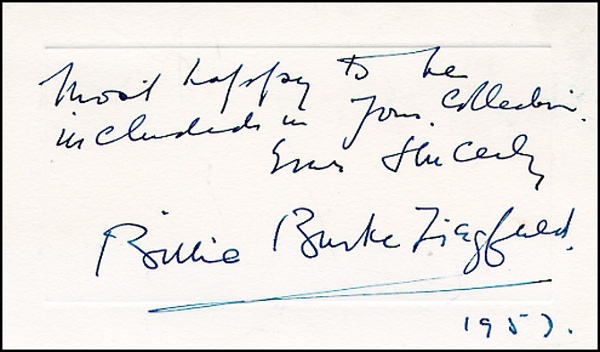 Most happy to be
included in your collection.
Ever Sincerely
Billie Burke Ziegfeld.
1957.